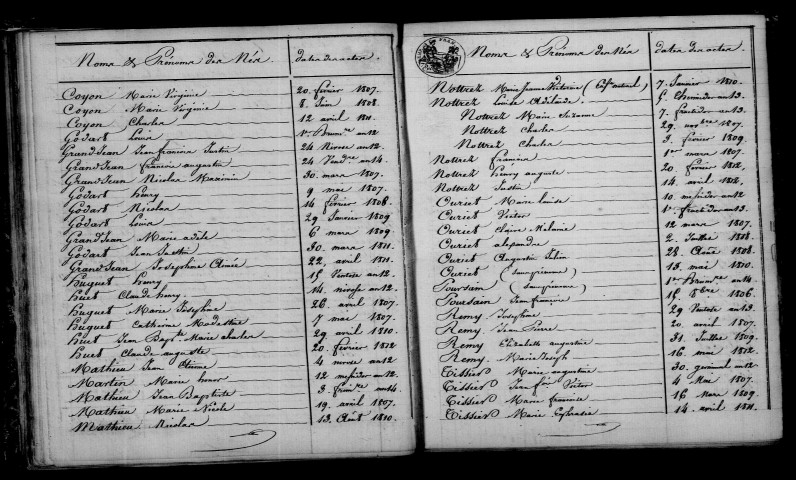 Noms & Prénoms des Nés. dates des actes.
Coyon Marie Virginie 20 février 1807.
Coyon Marie Virginie 8 Juin 1808.
Coyon Charles 12 avril 1811.
Godart Louis 1er Brum.re an 12
GrandJean Jean francois Justin 24 Nivose an 12.
GrandJean francois augustin 24 Vend.re an 14.
GrandJean Nicolas Maximin 30 mars 1807.
Godart henry 9 mai 1807.
Godart Nicolas 14 février 1808.
Godart Louis 29 Janvier 1809.
GrandJean Marie adele 6 mars 1809.
Godart Jean Justin 30 mars 1811.
GrandJean Josephine Aimée 22 avril 1811.
huguet henry 15 Ventose an 12.
huet Claude henry 14 nivose an 12.
huguet Marie Josephine 26 avril 1807.
huguet Catherine Modestine 7 mai 1807.
huet Jean Bap.te Marie Charles 29 avril 1810.
huet Claude auguste 20 février 1812
Mathieu Jean Etienne 4 nivose an 12
Martin Marie 12 messidor an 12
Mathieu Jean Baptiste 3 frim.re an 14.
Mathieu Marie Nicole 19 avril 1807.
Mathieu Nicolas 13 Août 1810.
Noms & Prénoms des Nés dates des actes.
Nottrez Marie Jeanne Victoire ( 7 Janvier 1810.
Nottrez Louise Adelaide 9 Thermidor an 13.
Nottrez Marie Suzanne 7 fructidor an 13.
Nottrez Charles 29 nov.bre 1807.
Nottrez Charles 3 février 1809.
Nottrez Francois 1er mars 1807.
Nottrez henry auguste 20 février 1812
Nottrez Justin 14 avril 1812.
Curiet Marie louise 10 messidor an 12
Curiet Victor 1er fructidor an 13.
Curiet Claire Melanie 12 mars 1807.
Curiet alexandre 2 Juillet 1808.
Curiet Augustin 28 Août 1808.
Curiet (surnuméraire) 13 mai 1810.
Poursain (surnuméraire) 1er Brum.re an 14
Poursain Jean francois 15 8bre 1806.
Remy Josephine 29 Ventose an 13.
Remy Jean Pierre 20 avril 1807.
Remy Elizabeth augustine 31 Juillet 1809.
Remy Marie Joseph 16 mai 1812
Tissier Marie augustine 30 germinal an 12
Tissier Jean f.ois Victor 4 Mai 1807.
Tissier Marie francoise 16 Mars 1809.
Tissier Marie Euphrasie 14 avril 1811.